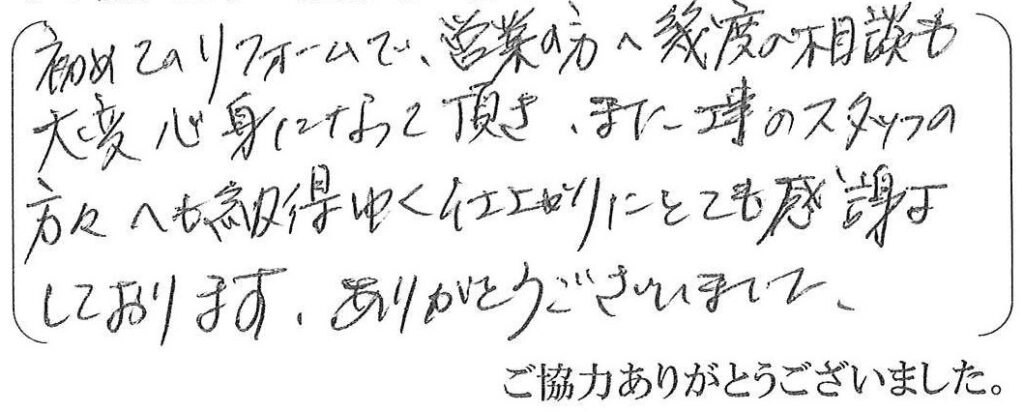 初めてのリフォームで、営業の方へ幾度の相談も
大変心身になって頂き、また工事のスタッフの
方々へも納得ゆく仕上がりにとても感謝
しております。ありがとうございました。
ご協力ありがとうございました。